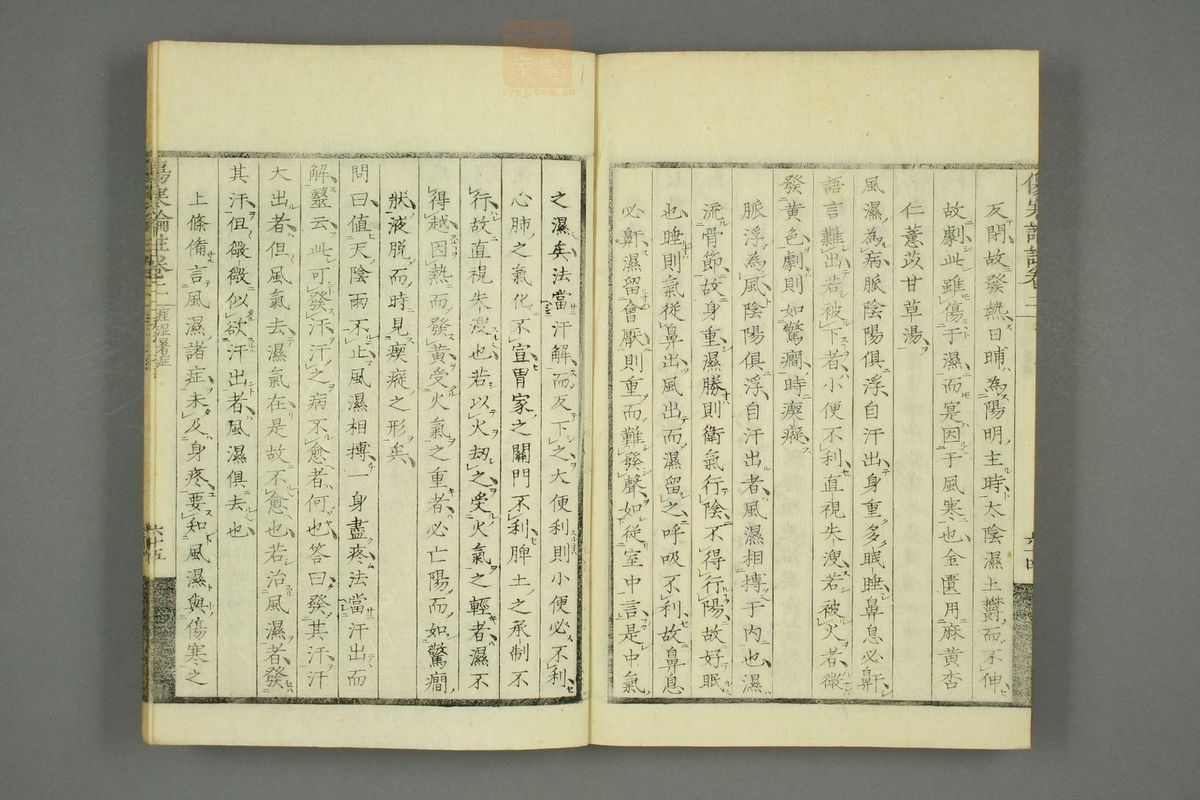 反閉故發熱日晡為陽明主時太陰濕土欝而不伸
故劇此雖傷于濕而寔因于風寒也金匱用麻黄杏
仁薏苡甘草湯
風濕為病脈陰陽俱浮自汗出身重多眠睡鼻息必鼾
語言難出若被下者小便不利直視失溲若被火者微
發黄色劇則如驚癇時瘈瘲
脈浮為風陰陽俱浮自汗出者風濕相搏于内也濕
流骨節故身重濕勝則衛氣行陰不得行陽故好眠
也睡則氣從鼻出風出而濕留之呼吸不利故鼻息
必鼾濕留會厭則重而難發聲如從室中言是中氣
之濕矣法當汗解而反下之大便利則小便必不利
心肺之氣化不宣胃家之關門不利脾土之承制不
行故直視失溲也若以火劫之受火氣之輕者濕不
得越因熱而發黄受火氣之重者必亡陽而如驚癇
狀液脱而時見瘈瘲之形矣
問曰值天陰雨不止風濕相搏一身盡疼法當汗出而
解醫云此可發汗汗之病不愈者何也答曰發其汗汗
大出者但風氣去濕氣在是故不愈也若治風濕者發
其汗但微微似欲汗出者風濕俱去也
上條備言風濕諸症未及身疼要知風濕與傷寒之
傷寒論註卷二
痙湿暑症
六十五